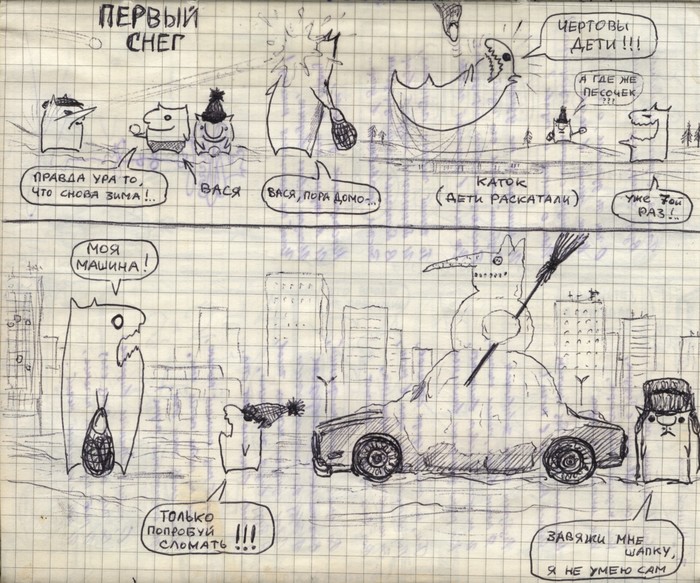 ПЕРВЫЙ
СНЕГ
ПРАВДА УРА ТО,
ЧТО СНОВА ЗИМА!..
ВАСЯ
ВАСЯ, ПОРА ДОМО-...
ЧЕРТОВЫ
ДЕТИ!!!
Я ГДЕ ЖЕ
ПЕСОЧЕК
???
КАТОК
(ДЕТИ РАСКАТАЛИ)
УЖЕ 7ОЙ
РАЗ!..
МОЯ
МАШИНА!
ТОЛЬКО
ПОПРОБУЙ
СЛОМАТЬ!!!
ЗАВЯЖИ МНЕ
ШАПКУ,
Я НЕ УМЕЮ САМ